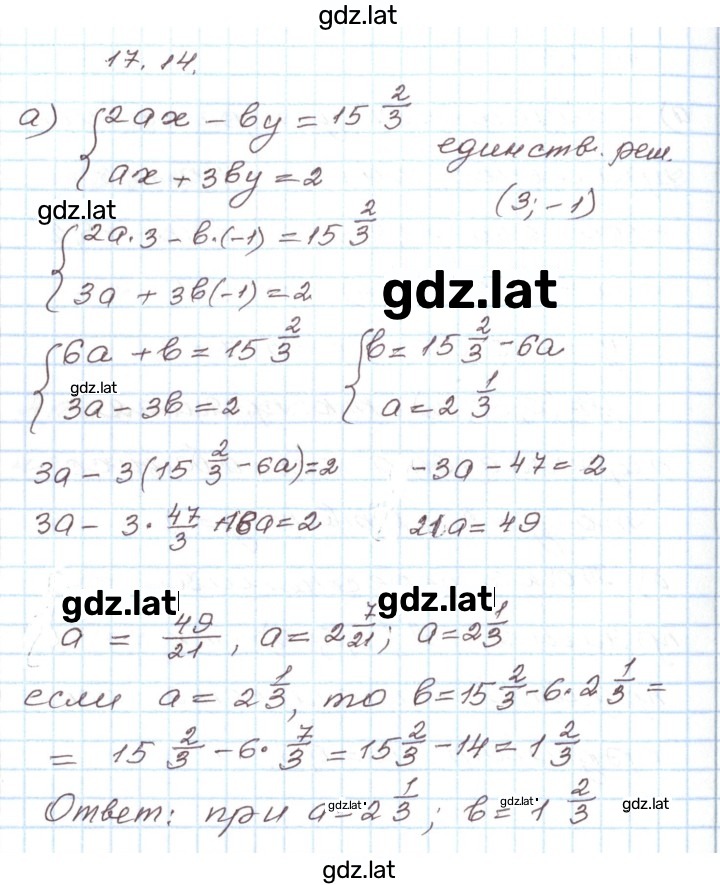 gdz.lat
17.14.
а) { 2ax - by = 15 2/3
ax + 3by = 2
единств. реш.
(3; -1)
gdz.lat
{ 2a·3 - b·(-1) = 15 2/3
3a + 3b(-1) = 2
gdz.lat
{ 6a + b = 15 2/3 { b = 15 2/3 - 6a
gdz.lat
3a - 3b = 2 a = 2 1/3
3a - 3(15 2/3 - 6a) = 2 -3a - 47 = 2
3a - 3·47/3 +18a = 2 21a = 49
gdz.lat gdz.lat
a = 49/21, a = 2 7/21; a = 2 1/3
если a = 2 1/3, то b = 15 2/3 - 6·2 1/3 =
= 15 2/3 - 6·7/3 = 15 2/3 - 14 = 1 2/3
Ответ: при a = 2 1/3; b = 1 2/3
gdz.lat gdz.lat gdz.lat
gdz.lat